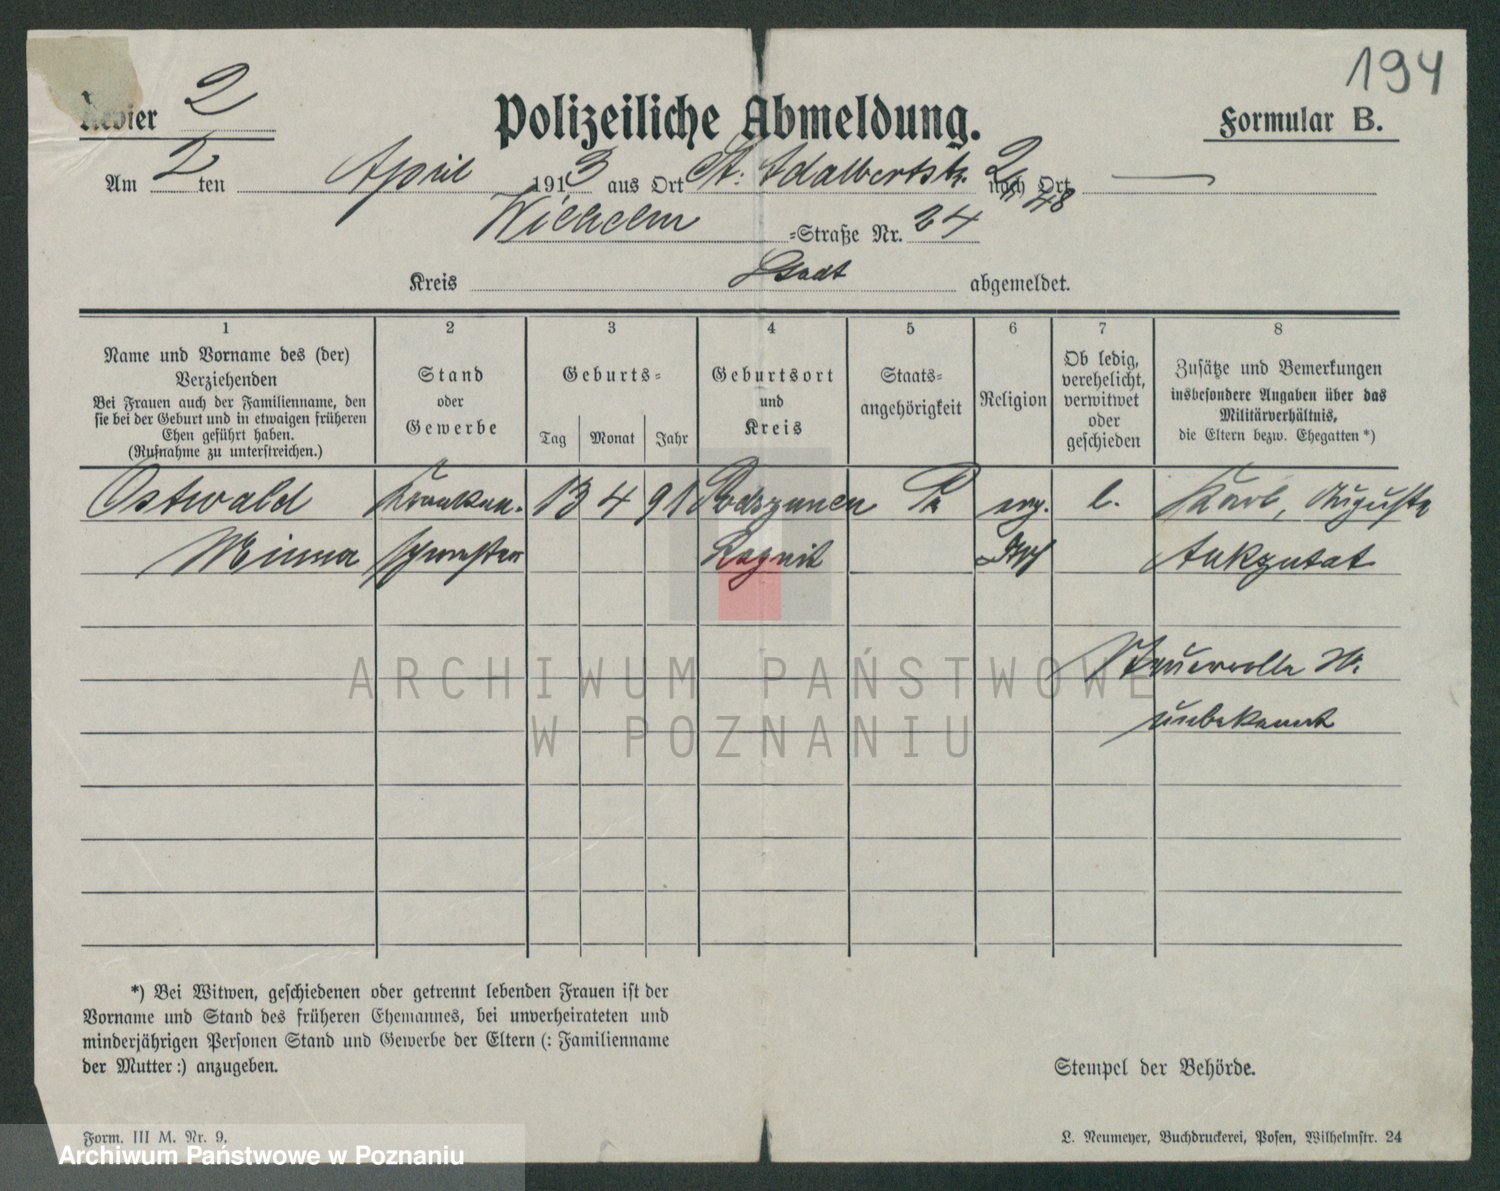 194
Revier 2
Polizeiliche Abmeldung.
Formular B.
Am 2 ten April 1913 aus Ort St. Adalbertstr. 2 nach Ort —
48
Wilhelm =Straße Nr. 24
Kreis Stadt abgemeldet.
1 2 3 4 5 6 7 8
Name und Vorname des (der)
Verziehenden
Bei Frauen auch der Familienname, den
sie bei der Geburt und in etwaigen früheren
Ehen geführt haben.
(Rufnahme zu unterstreichen.)
Stand
oder
Gewerbe
Geburts=
Tag Monat Jahr
Geburtsort
und
Kreis
Staats=
angehörigkeit
Religion
Ob ledig,
verehelicht,
verwitwet
oder
geschieden
Zusätze und Bemerkungen
insbesondere Angaben über das
Militärverhältnis,
die Eltern bezw. Ehegatten *)
Ostwald Kranken- 13 4 91 Podszunen Pr. evg. l. Karl, Auguste
Minna schwester Ragnit
Steuerrolle Nr.
unbekannt
ARCHIWUM PAŃSTWOWE
W POZNANIU
*) Bei Witwen, geschiedenen oder getrennt lebenden Frauen ist der
Vorname und Stand des früheren Ehemannes, bei unverheirateten und
minderjährigen Personen Stand und Gewerbe der Eltern (: Familienname
der Mutter :) anzugeben.
Stempel der Behörde.
Form. III M. Nr. 9.
L. Neumeyer, Buchdruckerei, Posen, Wilhelmstr. 24
Archiwum Państwowe w Poznaniu